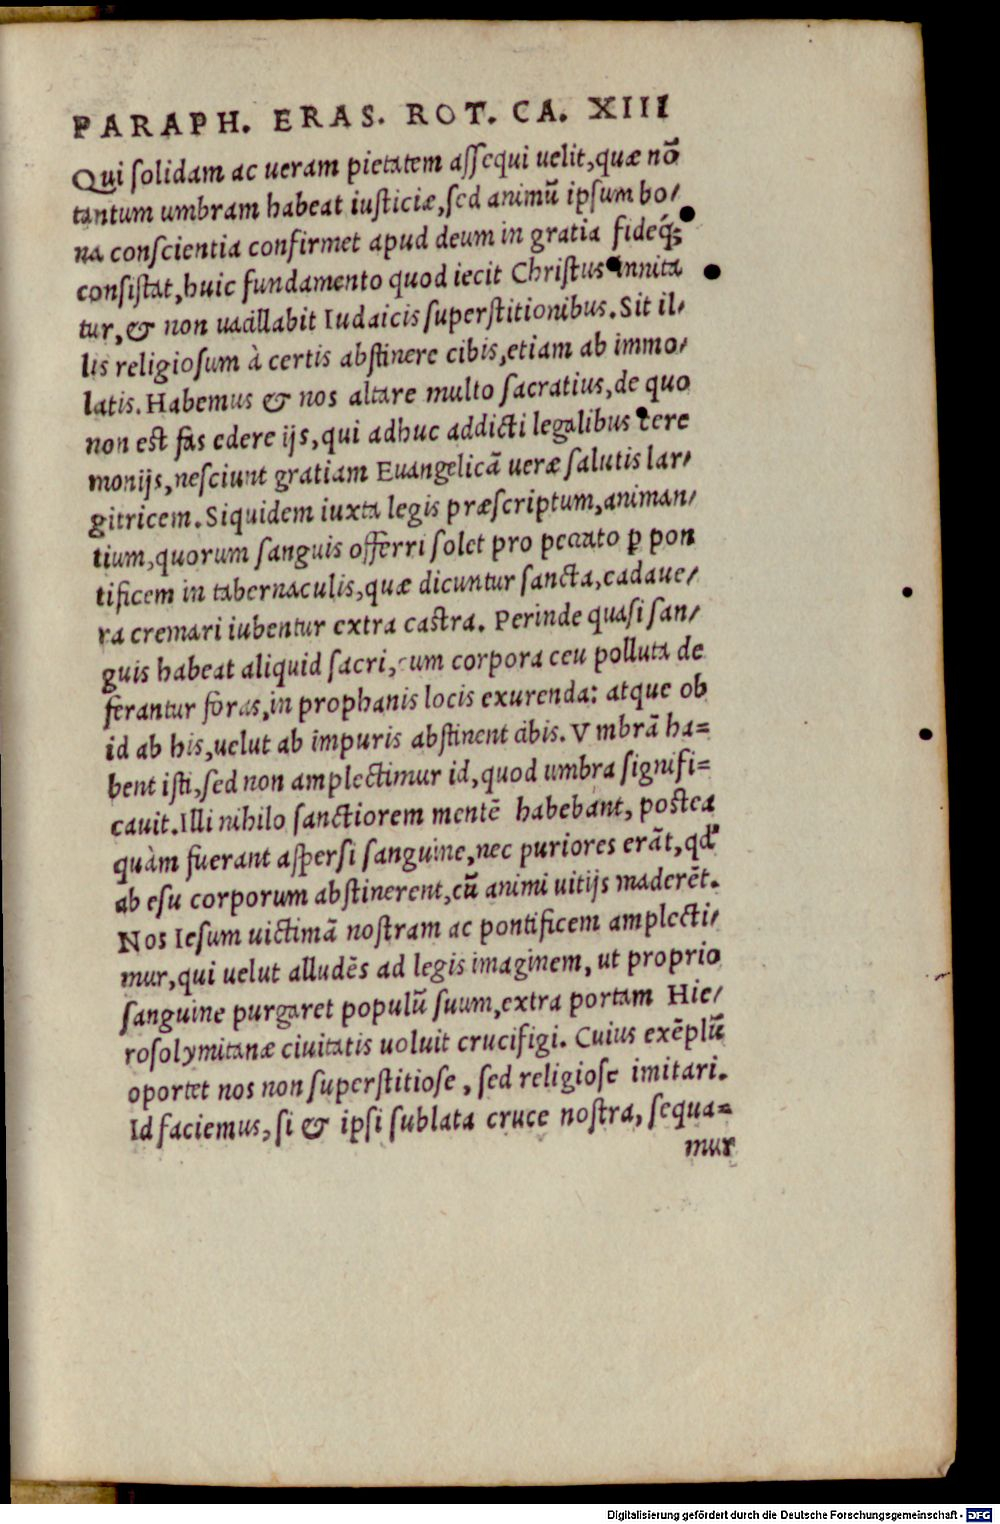 PARAPH. ERAS. ROT. CA. XIII
Qui solidam ac ueram pietatem assequi uelit, quæ nō
tantum umbram habeat iusticiæ, sed animū ipsum bo/
na conscientia confirmet apud deum in gratia fideq́;
consistat, huic fundamento quod iecit Christus innita
tur, & non uacillabit Iudaicis superstitionibus. Sit il/
lis religiosum à certis abstinere cibis, etiam ab immo/
latis. Habemus & nos altare multo sacratius, de quo
non est fas edere ijs, qui adhuc addicti legalibus cere
monijs, nesciunt gratiam Euangelicā ueræ salutis lar/
gitricem. Siquidem iuxta legis præscriptum, animan/
tium, quorum sanguis offerri solet pro peccato ꝑ pon
tificem in tabernaculis, quæ dicuntur sancta, cadaue/
ra cremari iubentur extra castra. Perinde quasi san/
guis habeat aliquid sacri, cum corpora ceu polluta de
ferantur foras, in prophanis locis exurenda: atque ob
id ab his, uelut ab impuris abstinent cibis. Vmbrā ha=
bent isti, sed non amplectimur id, quod umbra signifi=
cauit. Illi nihilo sanctiorem mentē habebant, postea
quàm fuerant aspersi sanguine, nec puriores erāt, qd'
ab esu corporum abstinerent, cū animi uitijs maderēt.
Nos Iesum uictimā nostram ac pontificem amplecti/
mur, qui uelut alludēs ad legis imaginem, ut proprio
sanguine purgaret populū suum, extra portam Hie/
rosolymitanæ ciuitatis uoluit crucifigi. Cuius exēplū
oportet nos non superstitiose, sed religiose imitari.
Id faciemus, si & ipsi sublata cruce nostra, sequa=
mur
Digitalisierung gefördert durch die Deutsche Forschungsgemeinschaft - DFG